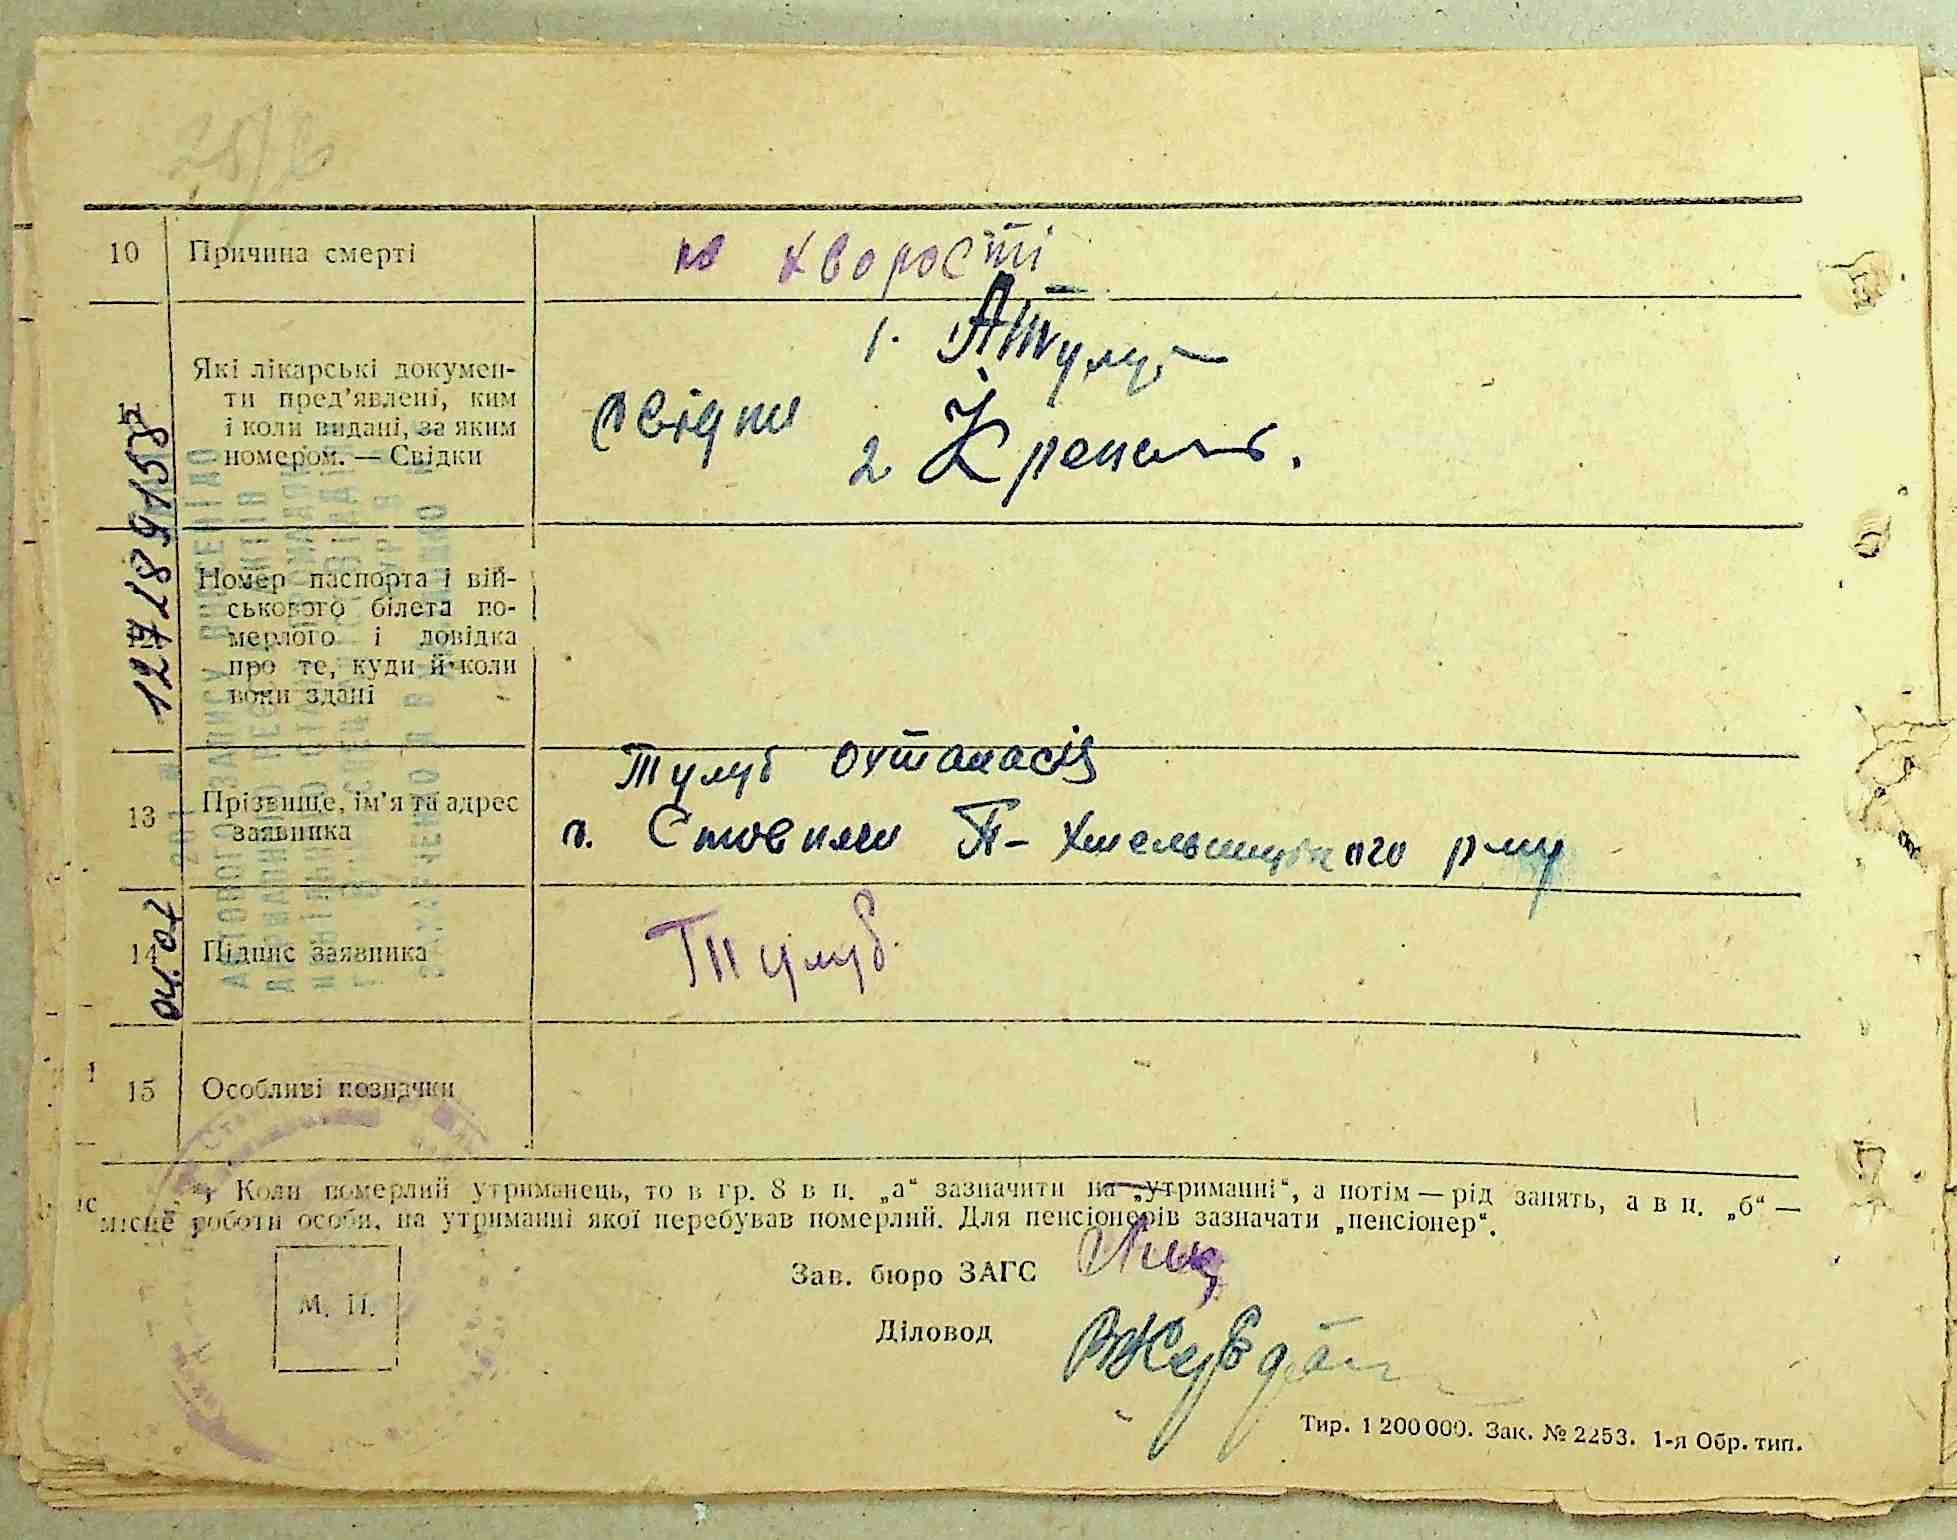 10 Причина смерті по хворості
Які лікарські докумен-
ти пред’явлені, ким
і коли видані, за яким
номером. — Свідки
1. АТулуб
свідки
2
Номер паспорта і вій-
ськового білета по-
мерлого і довідка
про те, куди й коли
вони здані
12728915
13 Прізвище, ім’я та адрес
заявника
Тулуб Охтанасій
с. Стовпяги П-Хмельницького р-ну
14 Підпис заявника Тулуб.
04.07
15 Особливі позначки
*) Коли померлий утриманець, то в гр. 8 в п. „а“ зазначити на „утриманні“, а потім — рід занять, а в п. „б“ —
місце роботи особи, на утриманні якої перебував померлий. Для пенсіонерів зазначати „пенсіонер“.
Зав. бюро ЗАГС
М. П.
Діловод
Тир. 1 200 000. Зак. № 2253. 1-я Обр. тип.